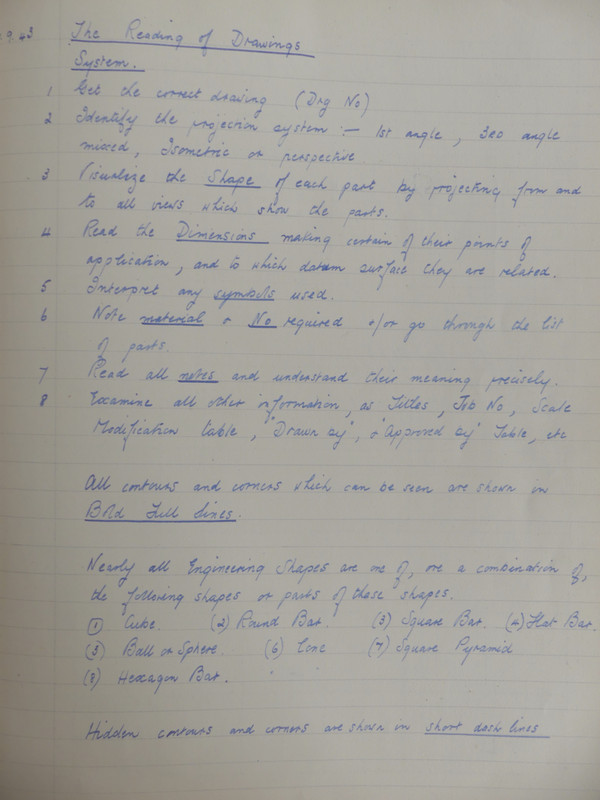 .9.43 The Reading of Drawings
System.
1 Get the correct drawing (Drg No)
2 Identify the projection system :— 1st angle, 3rd angle
mixed, Isometric or perspective
3 Visualize the Shape of each part by projecting from and
to all views which show the parts.
4 Read the Dimensions making certain of their points of
application, and to which datum surface they are related.
5 Interpret any symbols used.
6 Note material & No required &/or go through the list
of parts.
7 Read all notes and understand their meaning precisely.
8 Examine all other information, as Titles, Job No, Scale
Modification table, "Drawn by", & "Approved by" Table, etc
All contours and corners which can be seen are shown in
Bold Full Lines.
Nearly all Engineering Shapes are one of, or a combination of,
the following shapes or parts of those shapes.
(1) Cube. (2) Round Bar. (3) Square Bar. (4) Flat Bar.
(5) Ball or Sphere. (6) Cone (7) Square Pyramid
(8) Hexagon Bar.
Hidden contours and corners are shown in short dash lines